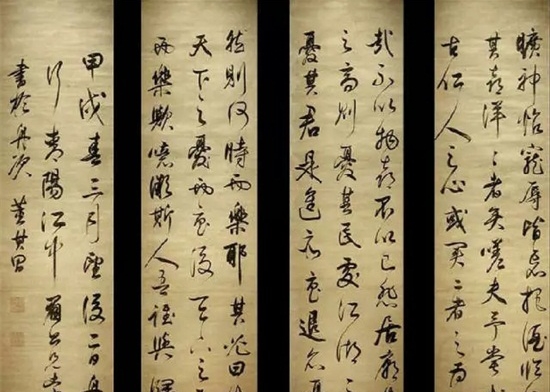 曠神怡寵辱皆忘把酒臨
其喜洋〻者矣嗟夫予嘗
古仁人之心或異二者之為
哉不以物喜不以己悲居廟
之高則憂其民處江湖之
憂其君是進亦憂退亦
然則何時而樂耶其必曰
天下之憂而憂後天下之
而樂歟噫微斯人吾誰與歸
甲戌春三月望後二日舟
行青陽江中
書於舟次 董其昌